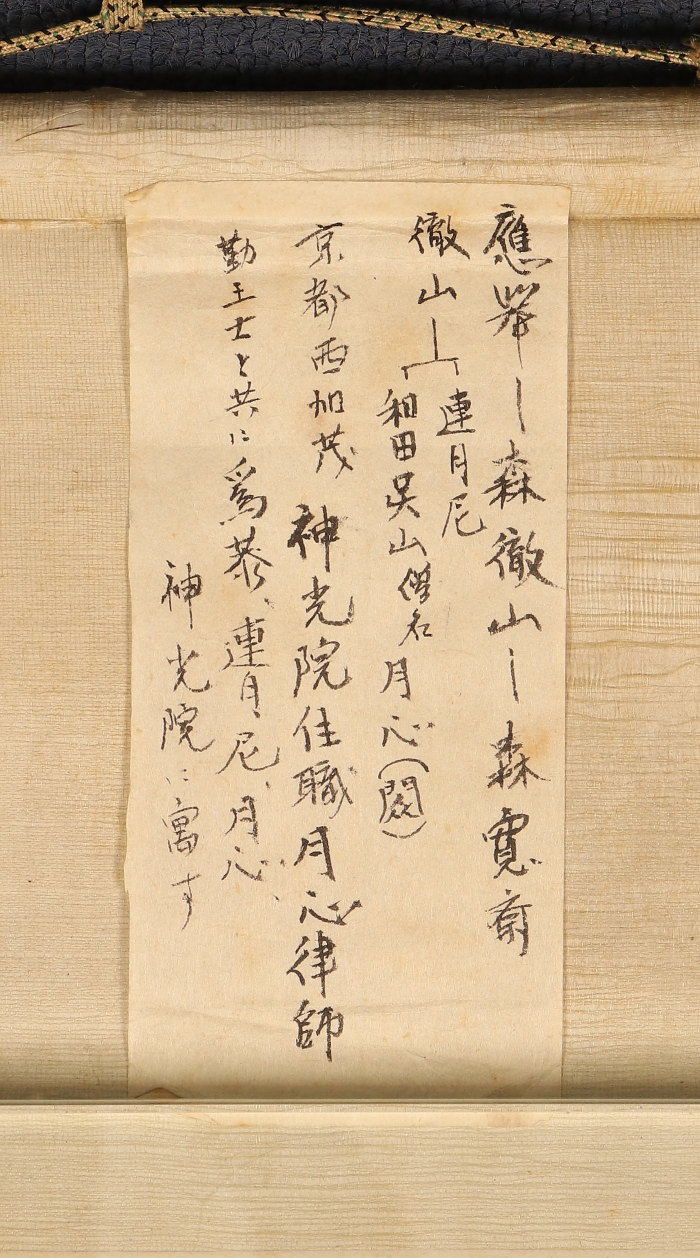 應挙ー森徹山ー森寛斎
徹山
連月尼
和田呉山 僧名 月心(閑)
京都西加茂 神光院住職月心律師
勤王士と共に為恭、連月尼、月心、
神光院に寓す